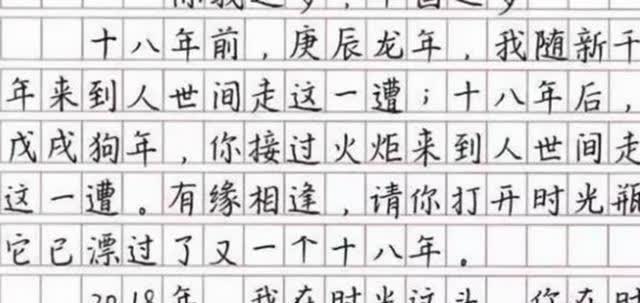 十八年前，庚辰龙年，我随新千
年来到人世间走这一遭；十八年后，
戊戌狗年，你接过火炬来到人世间走
这一遭。有缘相逢，请你打开时光瓶
它已漂过了又一个十八年。
2018年 我在时光这头 你在时